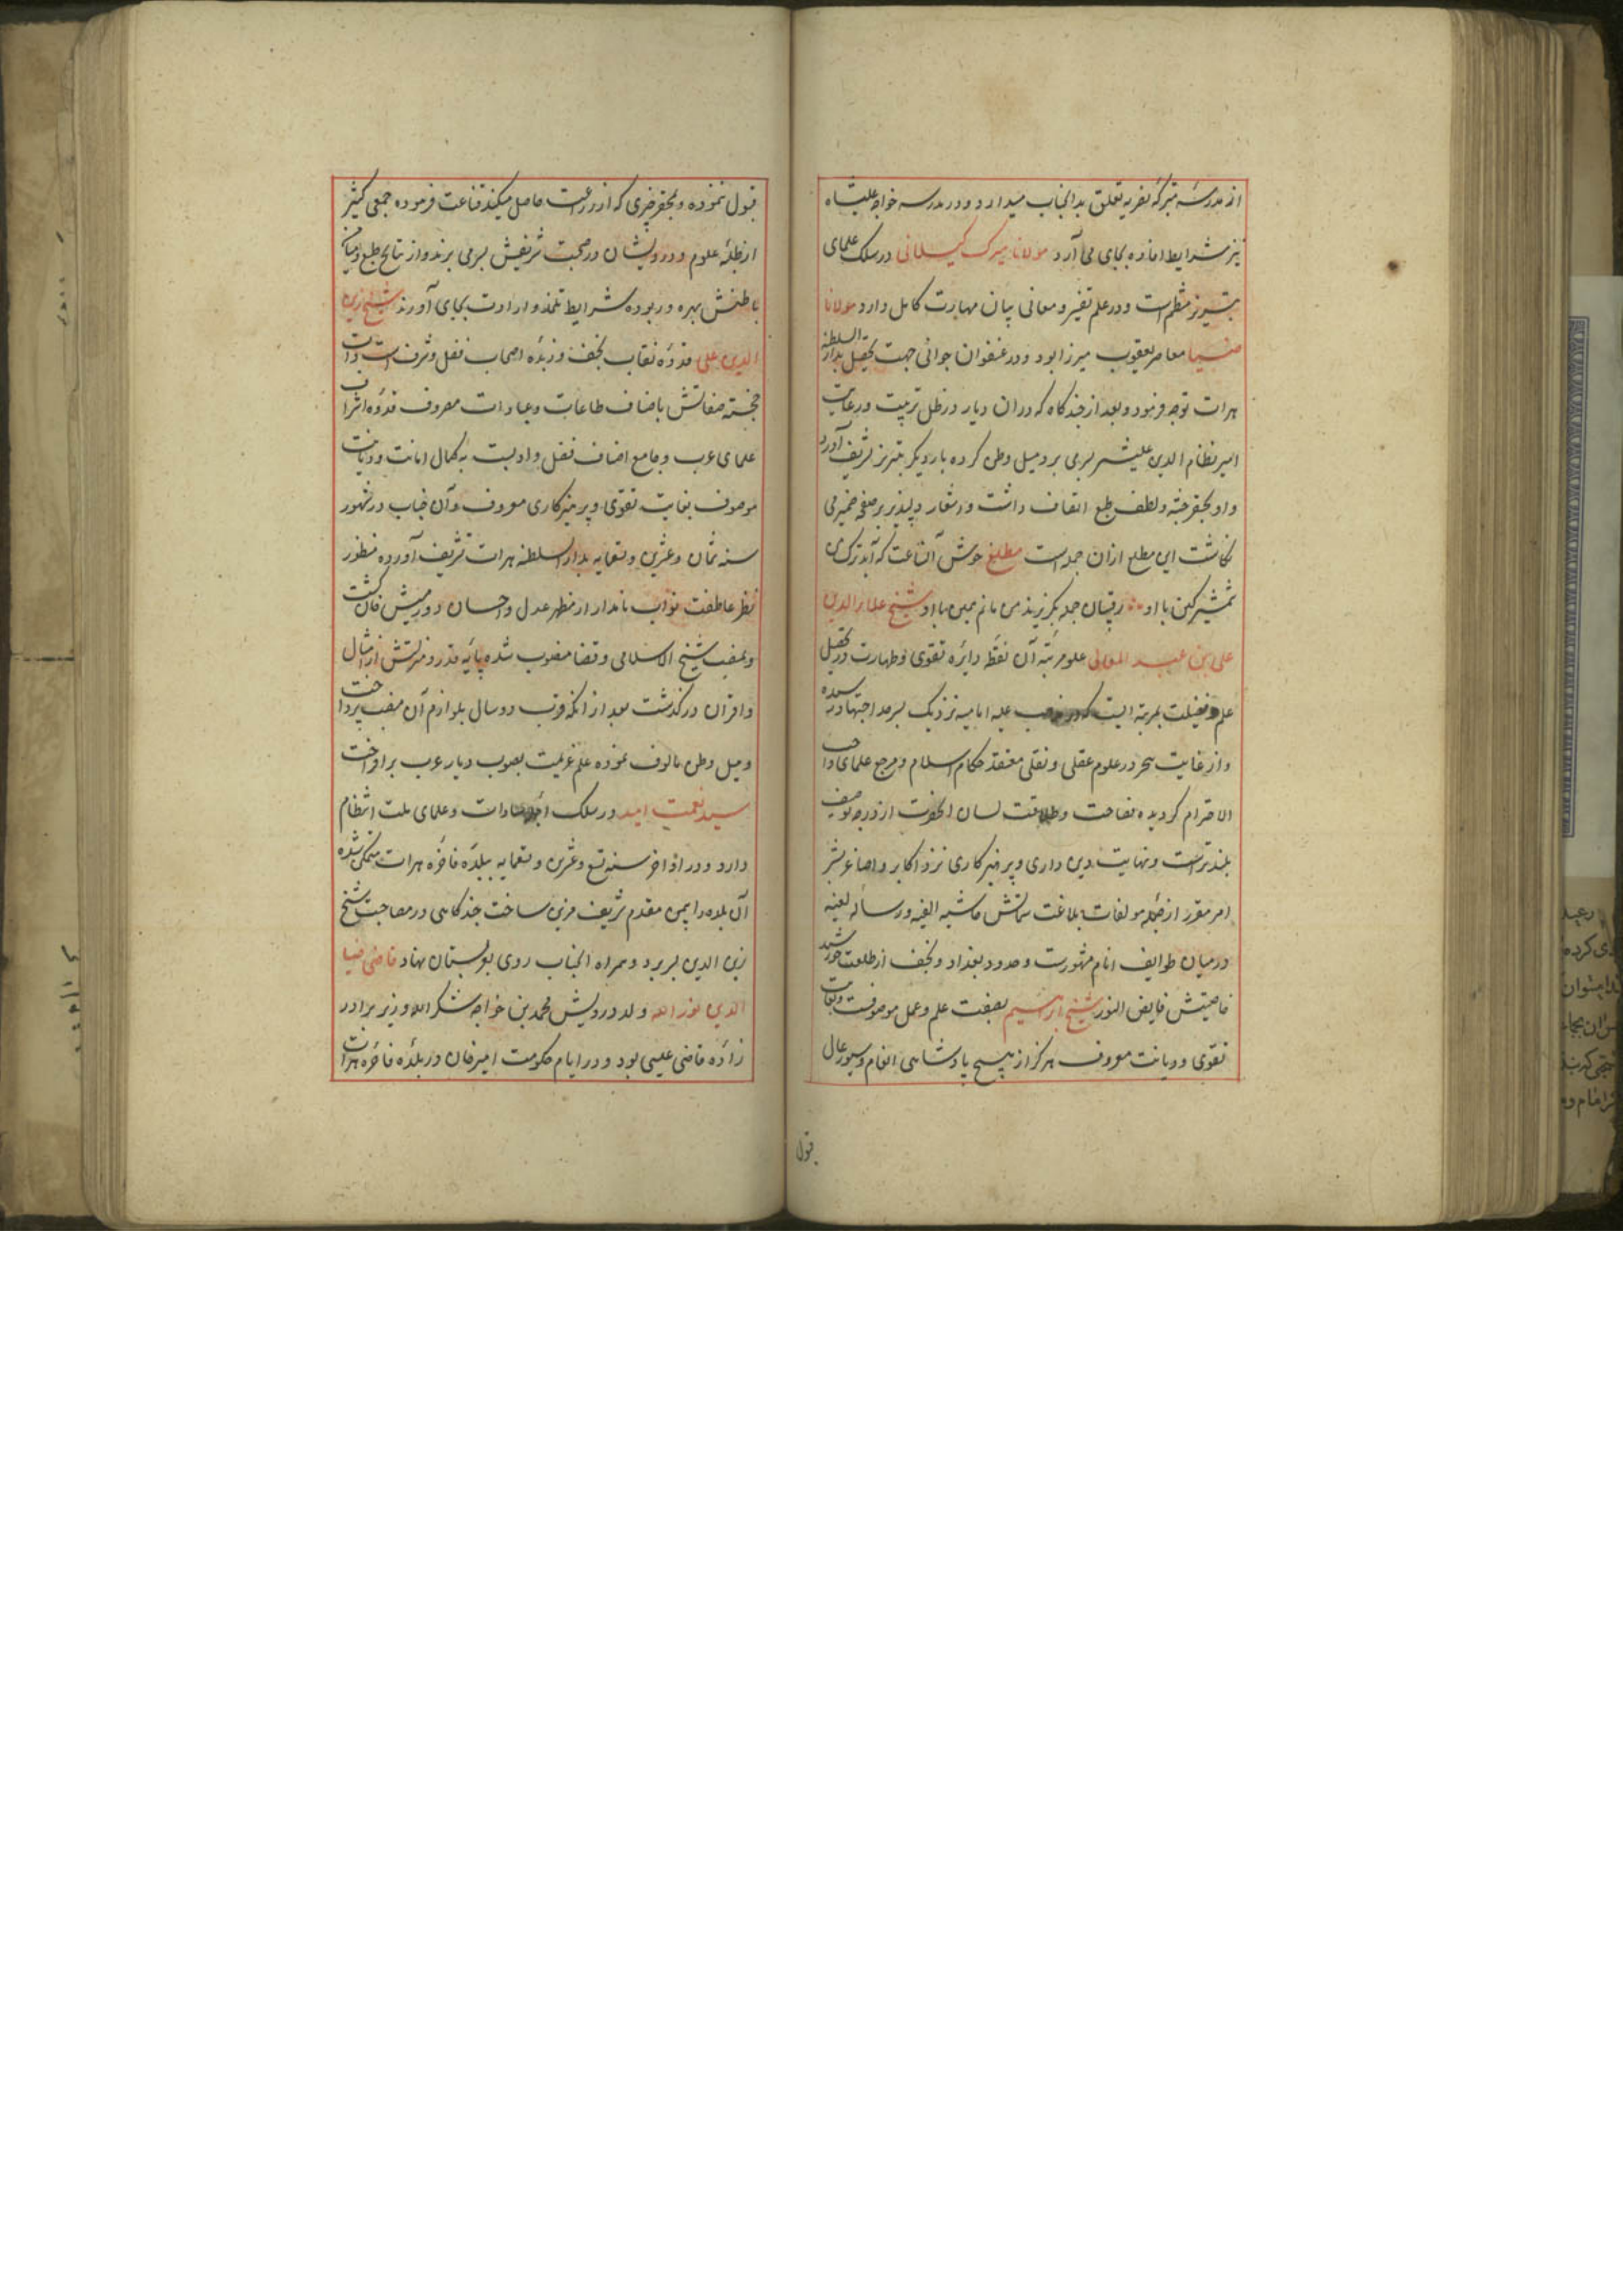 از مدرسه متبرکه نفریه تعلق بدانجناب میدارد و در مدرسه خواجه علیشاه
نیز شرایط افاده بجای می آرد مولانا میرک کیلانی در سلک علمای
تبریز منتظم است و در علم تفسیر و معانی بیان مهارت کامل دارد مولانا
معاصر یعقوب میرزا بود و در عنفوان جوانی جهت تحصیل بدار السلطنه
هرات توجه فرمود و بعد از چندگاه که در ان دیار در ظل تربیت و رعایت
امیر نظام الدین علیشیر بسر می برد میل وطن کرده بار دیگر بتبریز تشریف آورد
و او بحقر جثه و لطف طبع اتصاف داشت و اشعار دلپذیر بر صفحه ضمیر می
نکاشت این مطلع از ان جمله است مطلع خوش آنساعت که آید ترک من
شمشیر کین با او رقیبان جمله بگریزند من مانم همین با او شیخ علاء الدین
علی بن عبد العالی علو مرتبه آن نقطه دایره تقوی و طهارت در تحصیل
علم و فضیلت بمرتبه ایست که در مذهب علیه امامیه نزدیک بسرحد اجتهاد رسیده
و از غایت تبحر در علوم عقلی و نقلی معتقد حکام اسلام و مرجع علمای واجب
الاحترام کردیده فصاحت و طلاقت لسان انحضرت از درجه توصیف
بلندتر است و نهایت دین داری و پرهیزکاری نزد اکابر و اصاغر بشر
امر مقرر از جمله مولفات بلاغت سماتش حاشیه الفیه و رساله
در میان طوایف انام مشهورست و حدود بغداد و نجف از طلعت خورشید
خاصیتش فایض النور شیخ ابراهیم بصفت علم و عمل موصوفست و بغایت
تقوی و دیانت معروف هرگز از هیچ پادشاهی انعام و سیورغال
قبول
قبول ننموده و بمحقر چیزی که از زراعت حاصل میکند قناعت فرموده جمعی کثیر
از طلبه علوم و درویشان در صحبت شریفش بسر می برند و از نتایج طبع و میامن
باطنش بهره ور بوده شرایط تلمذ و ارادت بجای آورند شیخ زین
الدین علی قدوه نقاب نجف و زبده اصحاب فضل و شرف است ذات
خجسته صفاتش باصناف طاعات و عبادات معروف قدوه اشراف
علمای عرب و جامع اصناف فضل و ادبست به کمال امانت و دیانت
موصوف بغایت تقوی و پرهیزکاری معروف و آن جناب در شهور
سنه ثمان و عشرین و تسعمایه بدار السلطنه هرات تشریف آورده منظور
نظر عاطفت نواب نامدار از مظهر عدل و احسان دورمیش خان کشت
و بمنصب شیخ الاسلامی و قضا منصوب شده پایه قدر و منزلتش از امثال
و اقران در کذشت بعد از انکه قریب دو سال بلوازم آن منصب پرداخت
و میل وطن مالوف نموده علم عزیمت بصوب دیار عرب برافراخت
سید نعمت الله در سلک اجله سادات و علمای ملت انتظام
دارد و در اواخر سنه تسع و عشرین و تسعمایه ببلده فاخره هرات متمکن شده
آن بلده را بیمن مقدم شریف مزین ساخت چندکاهی در مصاحبت شیخ
زین الدین بسر برد و همراه انجناب روی بعربستان نهاد قاضی ضیا
الدین نور الله ولد درویش محمد بن خواجه شکر الله وزیر برادر
زاده قاضی عیسی بود و در ایام حکومت امیر خان در بلده فاخره هرات